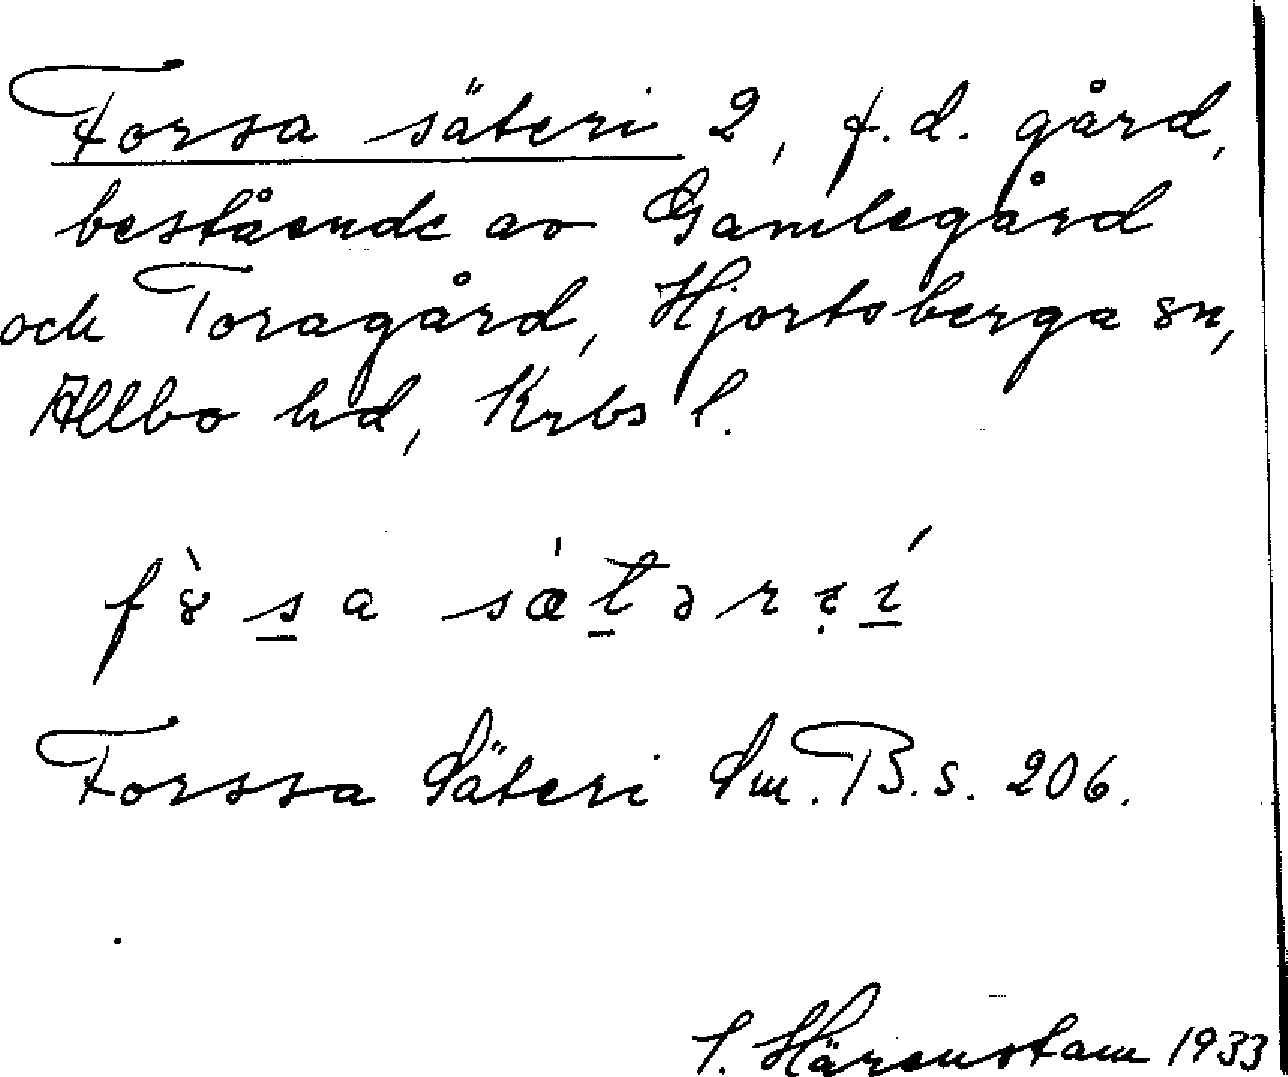 Forsa säteri 2, f.d. gård,
bestående av Gamlegård
och Toragård, Hjortsberga sn,
Allbo hd, Krbs l.
sætəri
Forssa Säteri Sm. B. s. 206.
Härenstam 1933